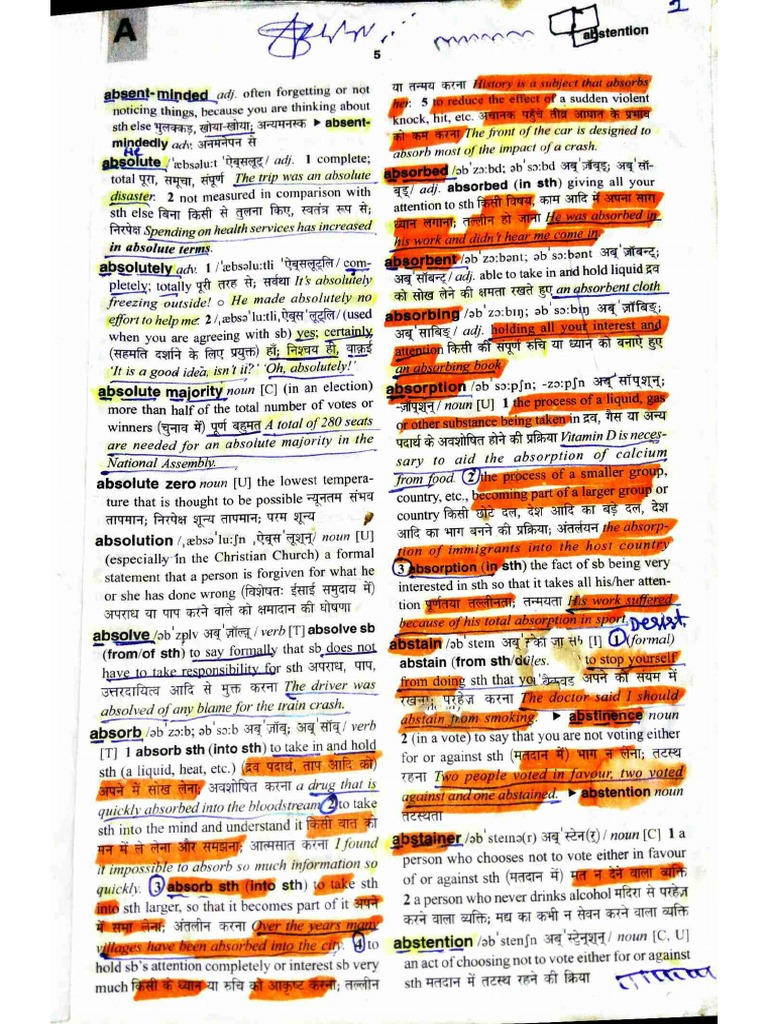 A
5
abstention
absent-minded adj. often forgetting or not
noticing things, because you are thinking about
sth else भुलक्कड़, खोया-खोया; अन्यमनस्क ▶ absent-
mindedly adv. अनमनेपन से
absolute /ˈæbsəluːt ˈऐब्सलूट्/ adj. 1 complete;
total पूरा, समूचा, संपूर्ण The trip was an absolute
disaster. 2 not measured in comparison with
sth else बिना किसी से तुलना किए, स्वतंत्र रूप से;
निरपेक्ष Spending on health services has increased
in absolute terms.
absolutely adv. 1 /ˈæbsəluːtli ˈऐब्सलूट्लि/ com-
pletely; totally पूरी तरह से; सर्वथा It's absolutely
freezing outside! ○ He made absolutely no
effort to help me. 2 /ˌæbsəˈluːtli, ऐब्सˈलूट्लि/ (used
when you are agreeing with sb) yes; certainly
(सहमति दर्शाने के लिए प्रयुक्त) हाँ; निश्चय ही, वाक़ई
'It is a good idea, isn't it?' 'Oh, absolutely!'
absolute majority noun [C] (in an election)
more than half of the total number of votes or
winners (चुनाव में) पूर्ण बहुमत A total of 280 seats
are needed for an absolute majority in the
National Assembly.
absolute zero noun [U] the lowest tempera-
ture that is thought to be possible न्यूनतम संभव
तापमान; निरपेक्ष शून्य तापमान; परम शून्य
absolution /ˌæbsəˈluːʃn ˌऐब्सˈलूशन्/ noun [U]
(especially in the Christian Church) a formal
statement that a person is forgiven for what he
or she has done wrong (विशेषतः ईसाई समुदाय में)
अपराध या पाप करने वाले को क्षमादान की घोषणा
absolve /əbˈzɒlv अब्ˈज़ॉल्व्/ verb [T] absolve sb
(from/of sth) to say formally that sb does not
have to take responsibility for sth अपराध, पाप,
उत्तरदायित्व आदि से मुक्त करना The driver was
absolved of any blame for the train crash.
absorb /əbˈzɔːb; əbˈsɔːb अब्ˈज़ॉब्; अब्ˈसॉब्/ verb
[T] 1 absorb sth (into sth) to take in and hold
sth (a liquid, heat, etc.) (द्रव पदार्थ, ताप आदि को)
अपने में सोख लेना; अवशोषित करना a drug that is
quickly absorbed into the bloodstream 2 to take
sth into the mind and understand it किसी बात को
मन में ले लेना और समझना; आत्मसात करना I found
it impossible to absorb so much information so
quickly. 3 absorb sth (into sth) to take sth
into sth larger, so that it becomes part of it अपने
में समा लेना; अंतर्लीन करना Over the years many
villages have been absorbed into the city. 4 to
hold sb's attention completely or interest sb very
much किसी के ध्यान या रुचि को आकृष्ट करना; तल्लीन
या तन्मय करना History is a subject that absorbs
her. 5 to reduce the effect of a sudden violent
knock, hit, etc. अचानक पहुँचे तीव्र आघात के प्रभाव
को कम करना The front of the car is designed to
absorb most of the impact of a crash.
absorbed /əbˈzɔːbd; əbˈsɔːbd अब्ˈज़ॉब्ड्; अब्ˈसॉ-
ब्ड्/ adj. absorbed (in sth) giving all your
attention to sth किसी विषय, काम आदि में अपना सारा
ध्यान लगाना; तल्लीन हो जाना He was absorbed in
his work and didn't hear me come in.
absorbent /əbˈzɔːbənt; əbˈsɔːbənt अब्ˈज़ॉबन्ट्;
अब्ˈसॉबन्ट्/ adj. able to take in and hold liquid द्रव
को सोख लेने की क्षमता रखते हुए an absorbent cloth
absorbing /əbˈzɔːbɪŋ; əbˈsɔːbɪŋ अब्ˈज़ॉबिङ्;
अब्ˈसाबिङ्/ adj. holding all your interest and
attention किसी की संपूर्ण रुचि या ध्यान को बनाएं हुए
an absorbing book
absorption /əbˈsɔːpʃn; -zɔːpʃn अब्ˈसॉप्शन्;
-ज़ॉप्शन्/ noun [U] 1 the process of a liquid, gas
or other substance being taken in द्रव, गैस या अन्य
पदार्थ के अवशोषित होने की प्रक्रिया Vitamin D is neces-
sary to aid the absorption of calcium
from food. 2 the process of a smaller group,
country, etc., becoming part of a larger group or
country किसी छोटे दल, देश आदि का बड़े दल, देश
आदि का भाग बनने की प्रक्रिया; अंतर्लयन the absorp-
tion of immigrants into the host country
3 absorption (in sth) the fact of sb being very
interested in sth so that it takes all his/her atten-
tion पूर्णतया तल्लीनता; तन्मयता His work suffered
because of his total absorption in sport.
Desist
abstain /əbˈsteɪn अब् [I] 1 (formal)
abstain (from sth/doing to stop yourself
from doing sth that अपने को संयम में
रखना; परहेज़ करना The doctor said I should
abstain from smoking. ▶ abstinence noun
2 (in a vote) to say that you are not voting either
for or against sth (मतदान में) भाग न लेना; तटस्थ
रहना Two people voted in favour, two voted
against and one abstained. ▶ abstention noun
तटस्थता
abstainer /əbˈsteɪnə(r) अब्ˈस्टेन(र्)/ noun [C] 1 a
person who chooses not to vote either in favour
of or against sth (मतदान में) मत न देने वाला व्यक्ति
2 a person who never drinks alcohol मदिरा से परहेज़
करने वाला व्यक्ति; मद्य का कभी न सेवन करने वाला व्यक्ति
abstention /əbˈstenʃn अब्ˈस्टेन्शन्/ noun [C, U]
an act of choosing not to vote either for or against
sth मतदान में तटस्थ रहने की क्रिया